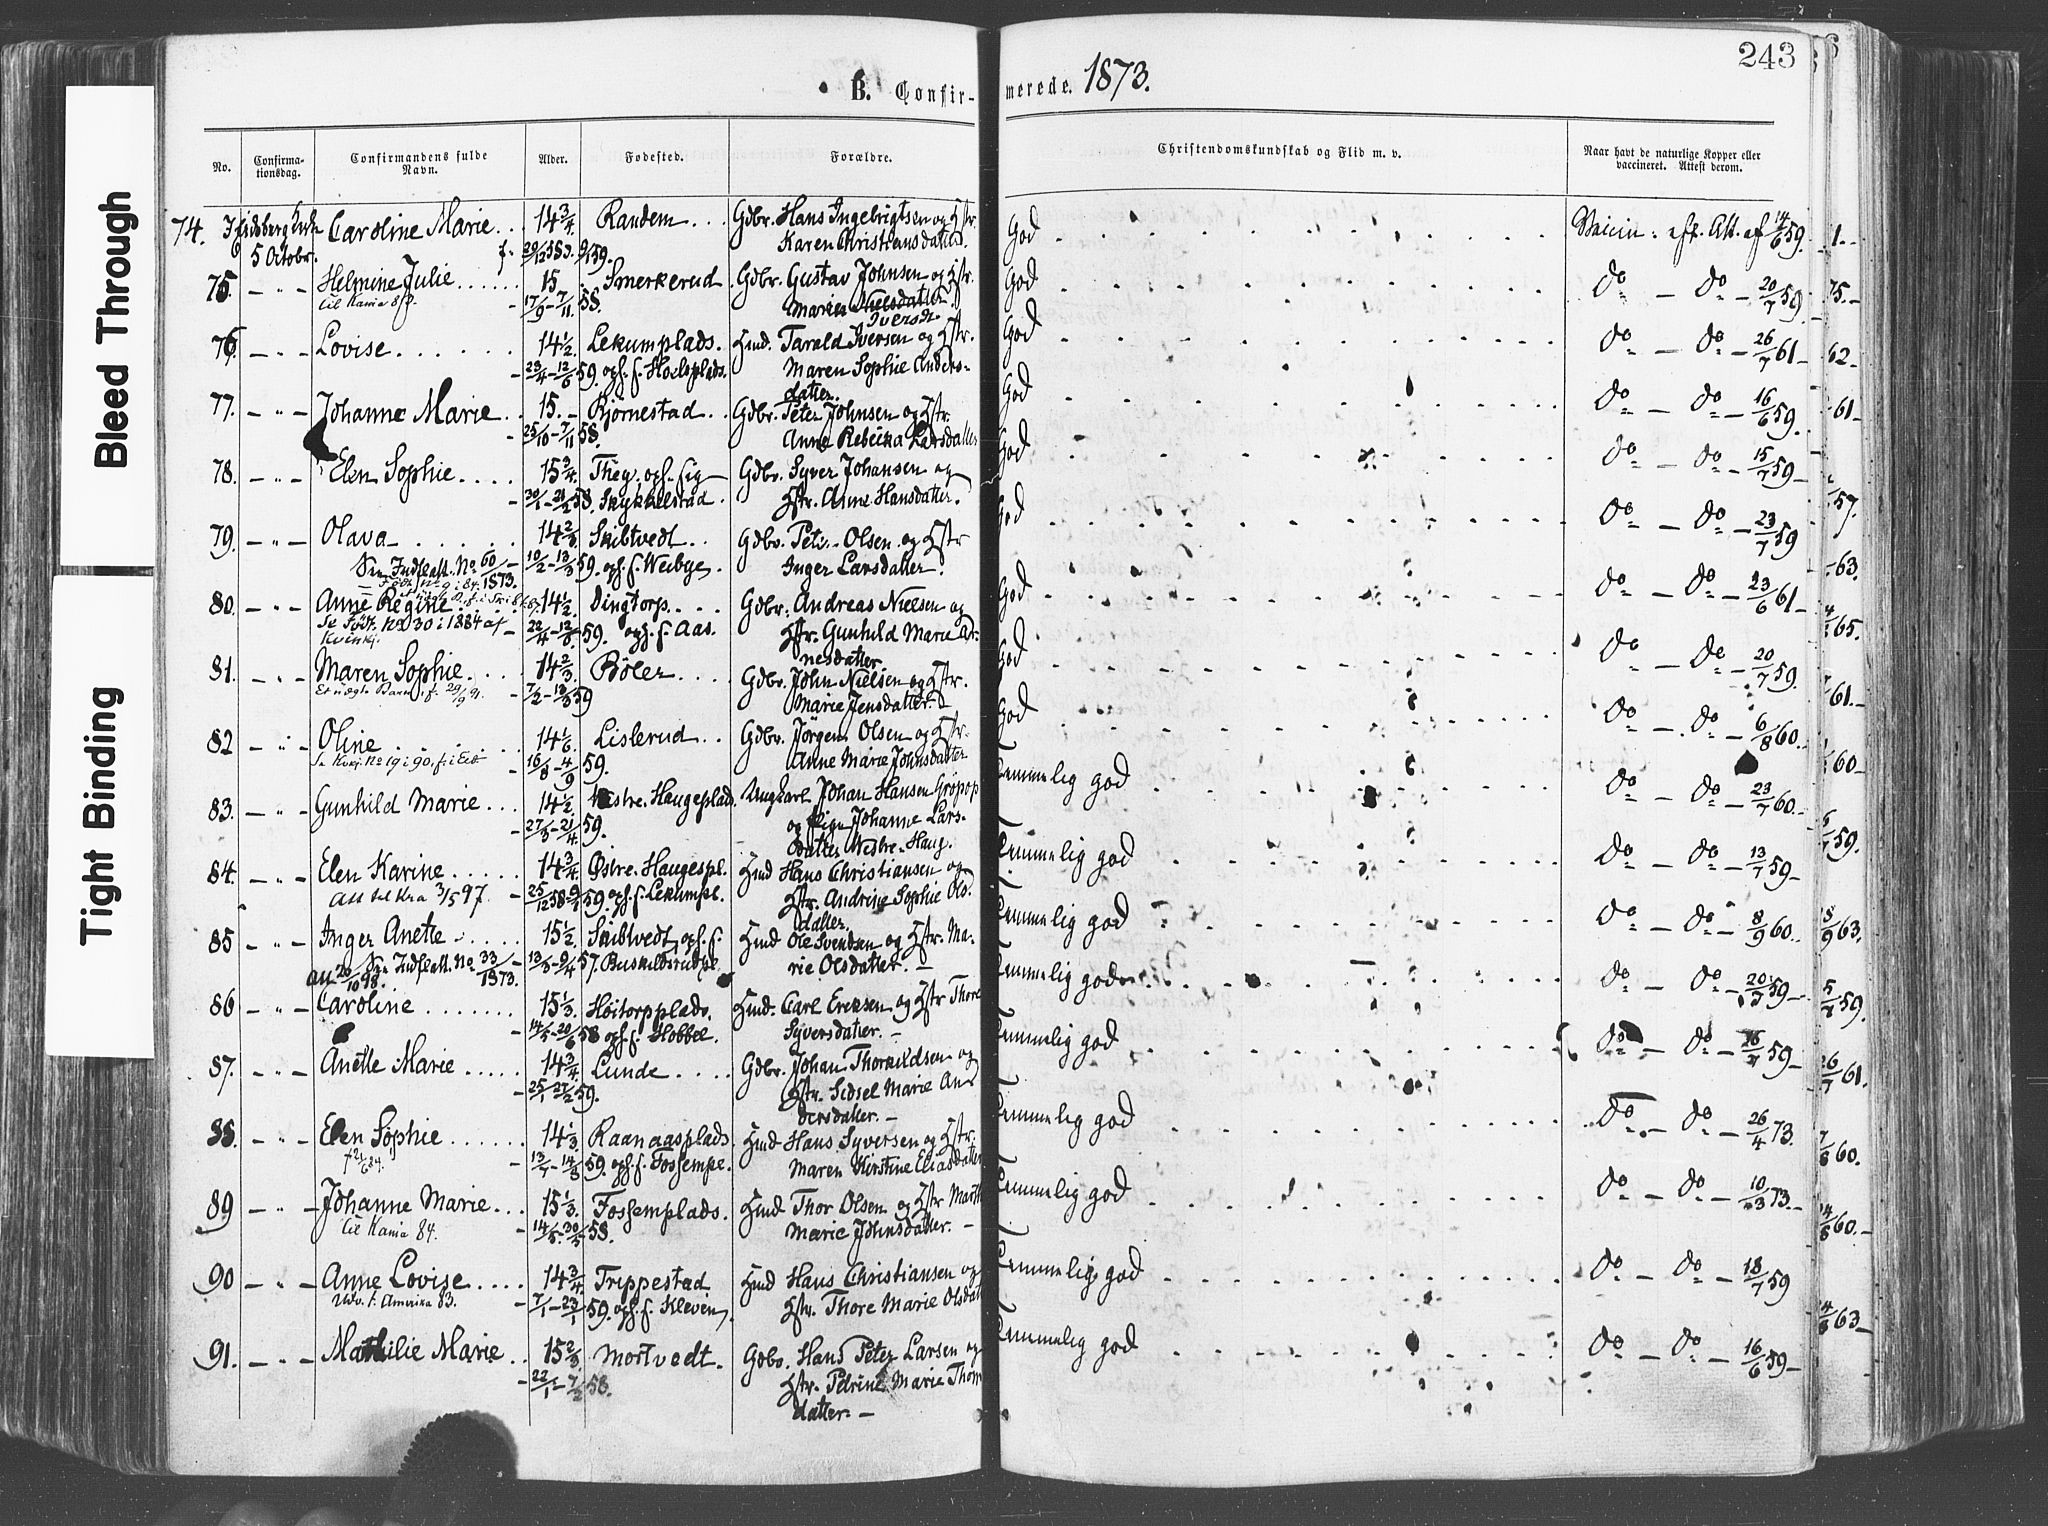 243
B. Confir- merede. 1873.
No. Confirma-tionsdag. Confirmandens fulde Navn. Alder. Fødested. Forældre. Christendomskundskab og Flid m. v. Naar havt de naturlige Kopper eller vaccineret. Attest derom.
74. 5 Octobr. Caroline Marie. 14 3/4 Randem Gdbr. Hans Ingebrigtsen og Hstr. God Vaccin: eff. Att. af 14/6 59.
Karen Christiansdatter.
75. Helmine Julie 15 Smerkerud Gdbr. Gustav Johnsen og Hstr. God do do 20/7 59
17/9 - 7/11 58. Maren Neelsdatter
Iversdt.
76. Lovise 14 1/2 Lekumplads. Hmd. Tarald Iversen og Hstr. God do do 26/7 61
23/4 - 12/6 59. oph. f. Hoelsplads. Maren Sophie Anders-
datter.
77. Johanne Marie 15. Bjørnestad Gdbr. Peter Johnsen og Hstr. God do do 16/6 59.
25/10 - 7/11 58. Anne Rebecka Larsdatter
78. Elen Sophie 15 3/4 Gdbr. Syver Johansen og God do do 15/7 59
30/1 - 21/2 58. Skykkelstad. Hstr. Anne Hansdatter.
79. Olava 14 2/3 Skibtvedt Gdbr. Olsen og Hstr God do do 23/7 59
Indfl. att. No 60 10/2 - 13/3 59. oph. f. Weibye. Inger Larsdatter.
1873.
80. Anne Regine 14 1/2 Dingtorp Gdbr. Andreas Nielsen og God do do 23/6 61
Se Født. No 30 i 1884 af 22/4 - 12/6 59. oph. f. Aas. Hstr. Gunhild Marie Ar-
Kvinkj. nesdatter.
81. Maren Sophie 14 2/3 Böler Gdbr. John Nielsen og Hstr. God do do 20/7 59.
7/2 - 13/3 59 Marie Jensdatter.
82 Oline 14 1/6 Lislerud Gdbr. Jörgen Olsen og Hstr. God do do 6/8 60.
16/8 - 4/9 59. Anne Marie Johnsdatter
83. Gunhild Marie 14 1/2 Vestre Haugeplads. Ungkarl Johan Hansen Temmelig god do do 23/7 60.
27/3 - 21/4 59. og Pigen Johanne Lars-
datter Westre-Haug.
84. Elen Karine 14 3/4 Østre Haugespl. Hmd Hans Christiansen og Temmelig god do do 13/7 59
Att til Kra 3/5 97. 25/12 58 - 9/1 59. oph. f. Lekumpl. Hstr. Andrine Sophie Ols-
datter.
85 Inger Anette 15 1/2 Skibtvedt, oph. f. Hmd Ole Svendsen og Hstr. Ma- Temmelig god do do 8/9 60.
Indfl. att. No 33/1873. 13/3 - 9/4 57. rie Olsdatter.
86 Caroline 15 1/3 Höitorpplads. Hmd. Carl Ereksen og Hstr Thore Temmelig god do do 20/7 59
14/5 - 20/6 58 oph. f. Hobbel. Syversdatter.
87. Anette Marie 14 3/4 Lunde Gdbr. Johan Thorkildsen og Temmelig god do do 16/7 59
25/1 - 27/2 59. Hstr. Sidsel Marie An-
dersdatter.
88. Elen Sophie 14 1/3 Raanaasplads Hmd Hans Syversen og Hstr. Temmelig god do do 26/4 73.
13/7 - 14/8 59. oph. f. Fossempe. Maren Kirstine Eliasdatter
89 Johanne Marie 15 1/3 Fossemplads. Hmd Thor Olsen og Hstr Marthe Temmelig god do do 10/3 73.
til Kania 84. 14/5 - 30/5 58. Marie Johnsdatter.
90 Anne Lovise 14 3/4 Trippestad Hmd Hans Christiansen og Temmelig god do do 18/7 59
Udv. t. Amerika 83. 7/1 - 23/1 59. oph. f. Kleven. Hstr. Thore Marie Olsdatt
91. Mathilie Marie 15 2/3 Mortvedt. Gdbr. Hans Peter Larsen og Temmelig god do do 16/6 59
22/1 - 7/2 58. Hstr. Marie Thom
datter.
Bleed Through
Tight Binding